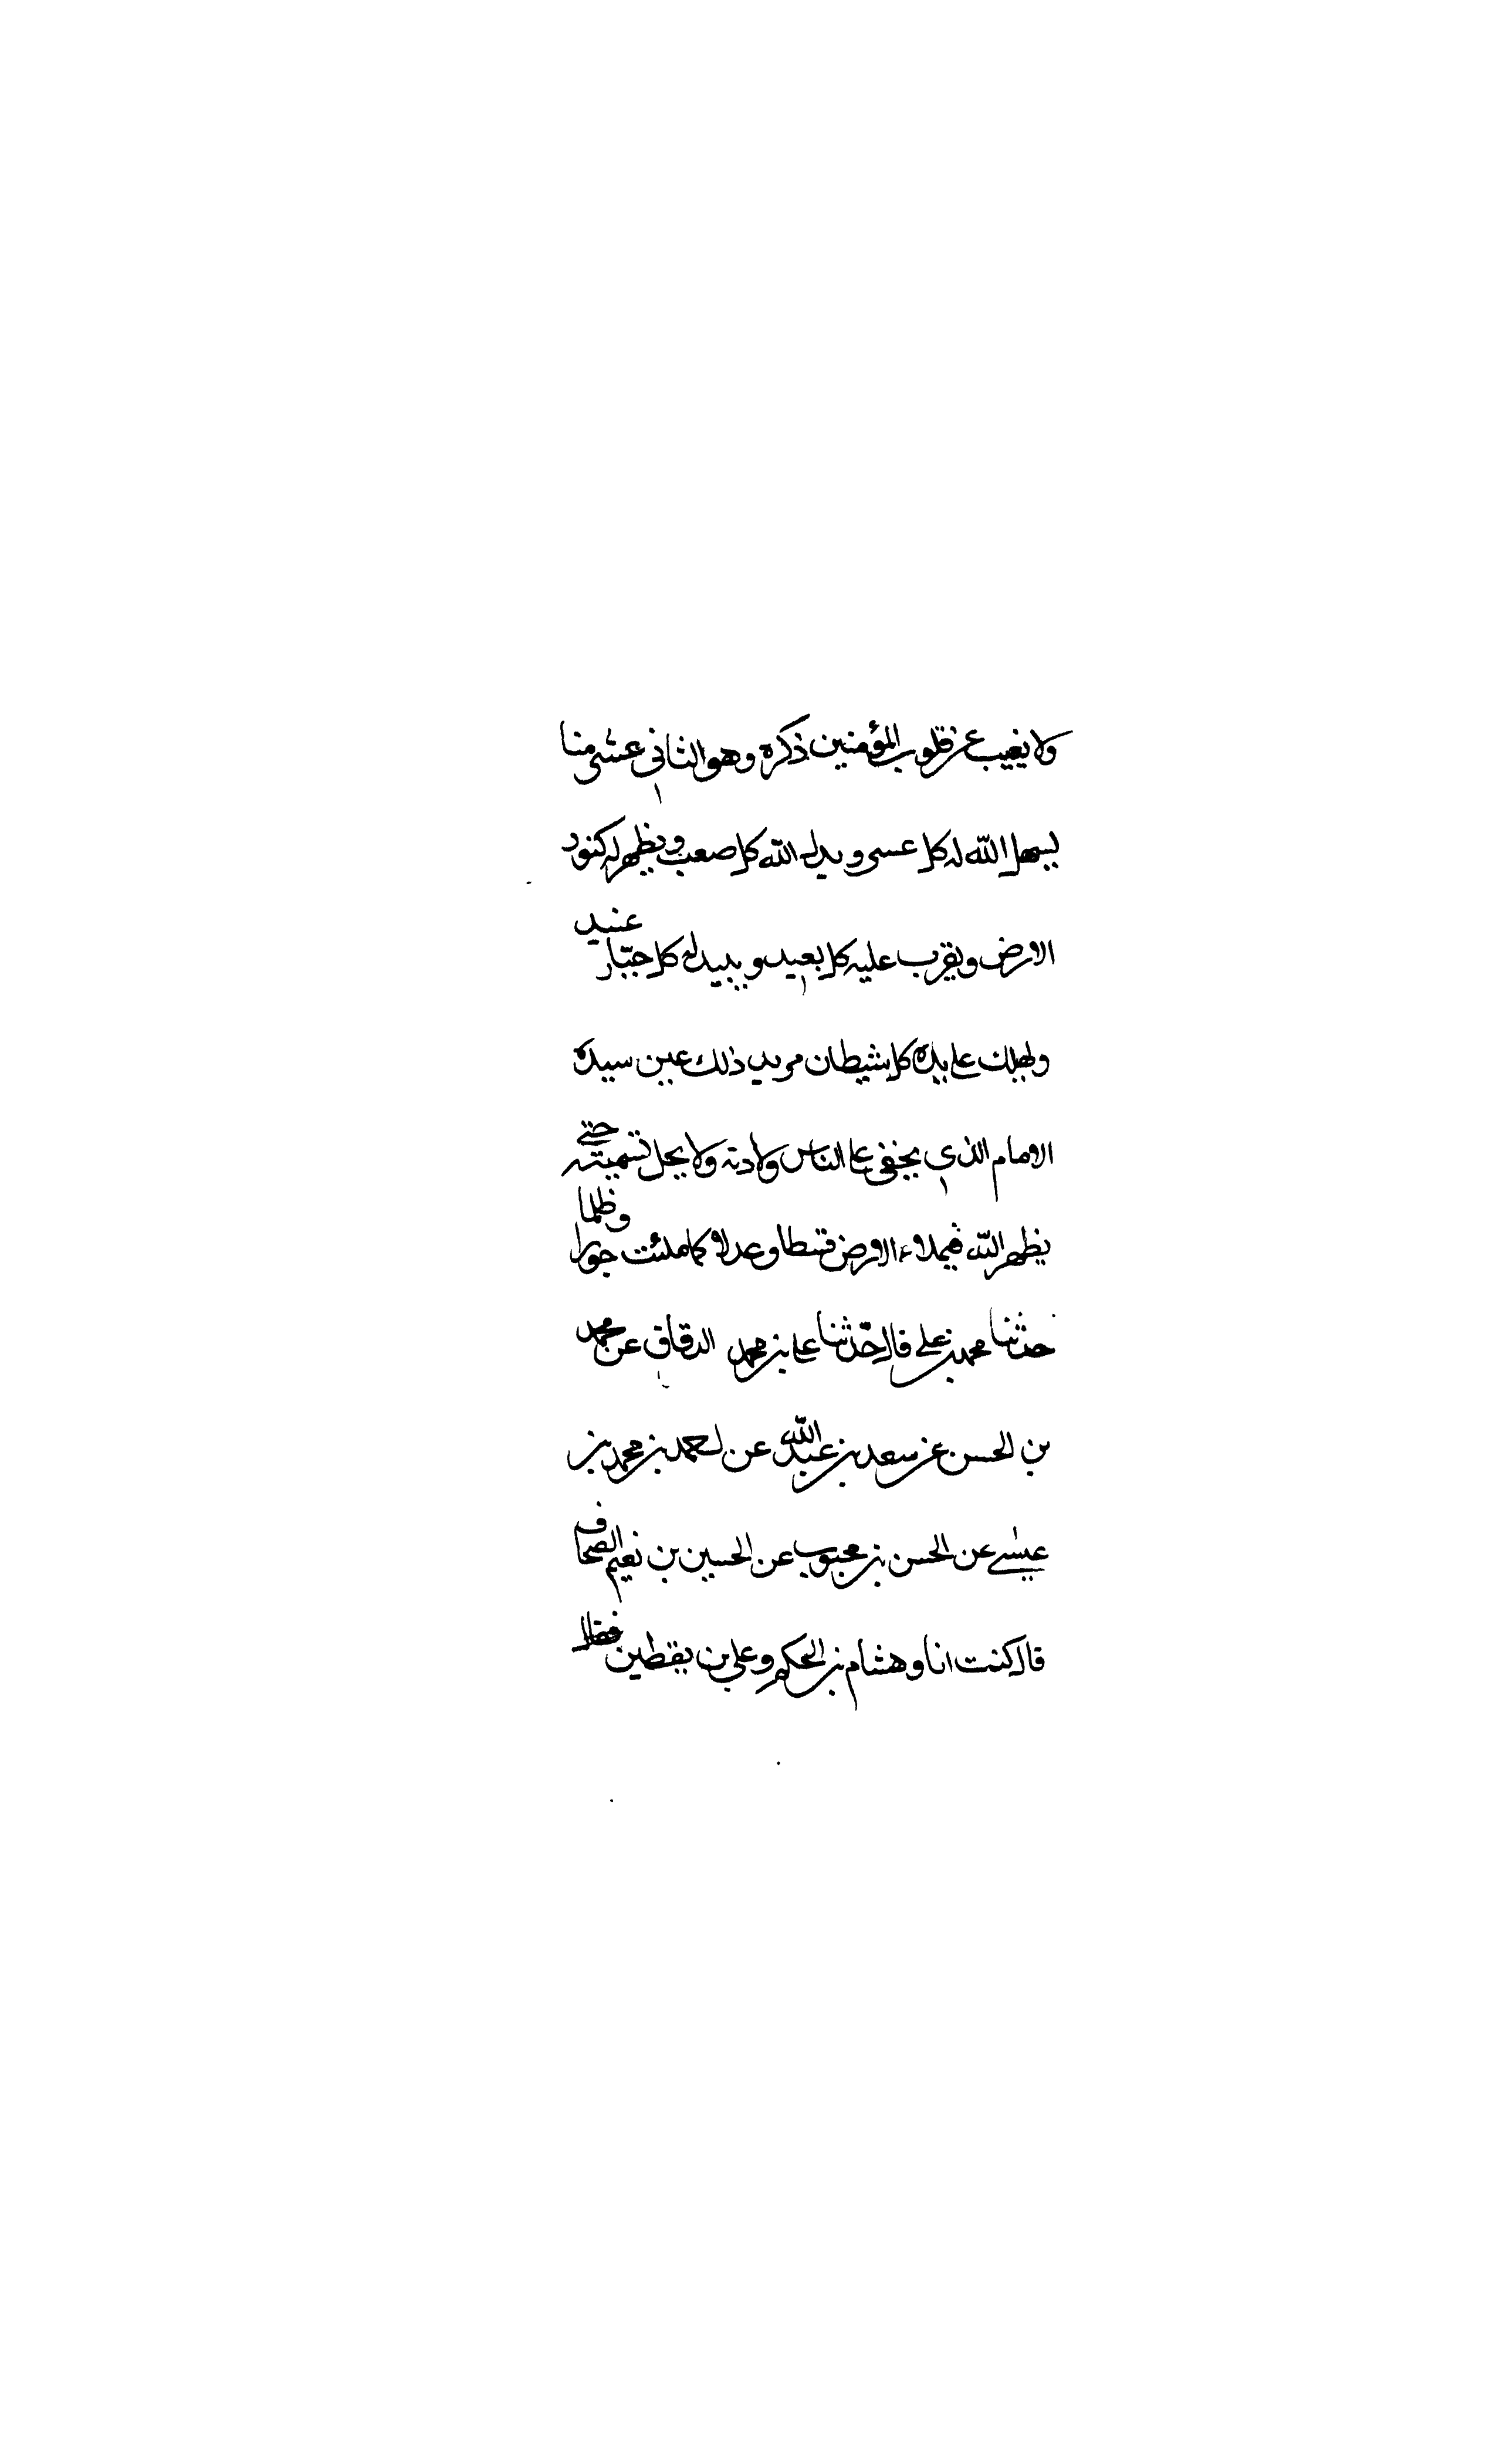 ولا يغيب عن قلوب المؤمنين ذكره وهو الثاني عشر منا
يسهل الله له كل عسر و يدلل الله كل صعب ويظهر له كنوز
الارض ويقرب عليه كل بعيد و يبيد له كل جبّار عنيد
ويهلك على يده كل شيطان مريد ذلك عين سيده
الامام الذي يخفى على الناس ولادته ولا يحل تسميته حتى
يظهر الله فيملاء الارض قسطا وعدلا كما ملئت جورا وظلما
حدثنا محمد بن علي قال حدّثنا علي بن محمد الدقاق عن محمد
بن الحسن عن سعد بن عبد الله عن احمد بن محمد بن
عيسى عن الحسن بن محبوب عن الحسين بن نعيم الصحاف
قال كنت انا و هشام بن الحكم و علي بن يقطين فقال